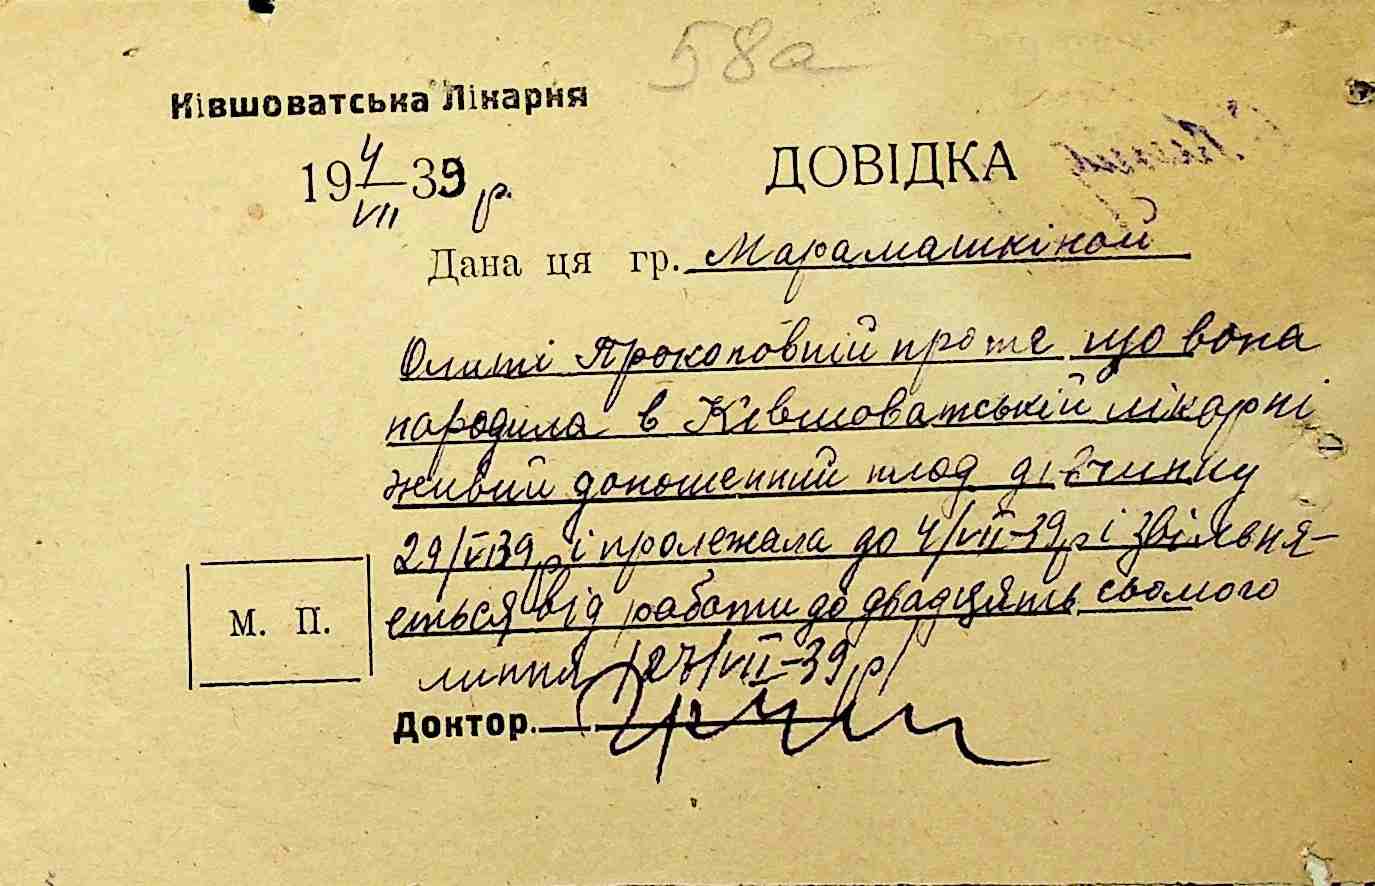 58а
Ківшоватська Лікарня
19 4/VII 39 р.
ДОВІДКА
Дана ця гр. Марамашкіной
Прокоповній про те що вона
народила в Ківшоватській лікарні
живий доношенний плод дівчинку
29/VI 39 р і пролежала до 4/VII-39 р і звільня-
еться від работи до двадцять сьомого
липня /27/VII-39 р/
М. П.
Доктор.